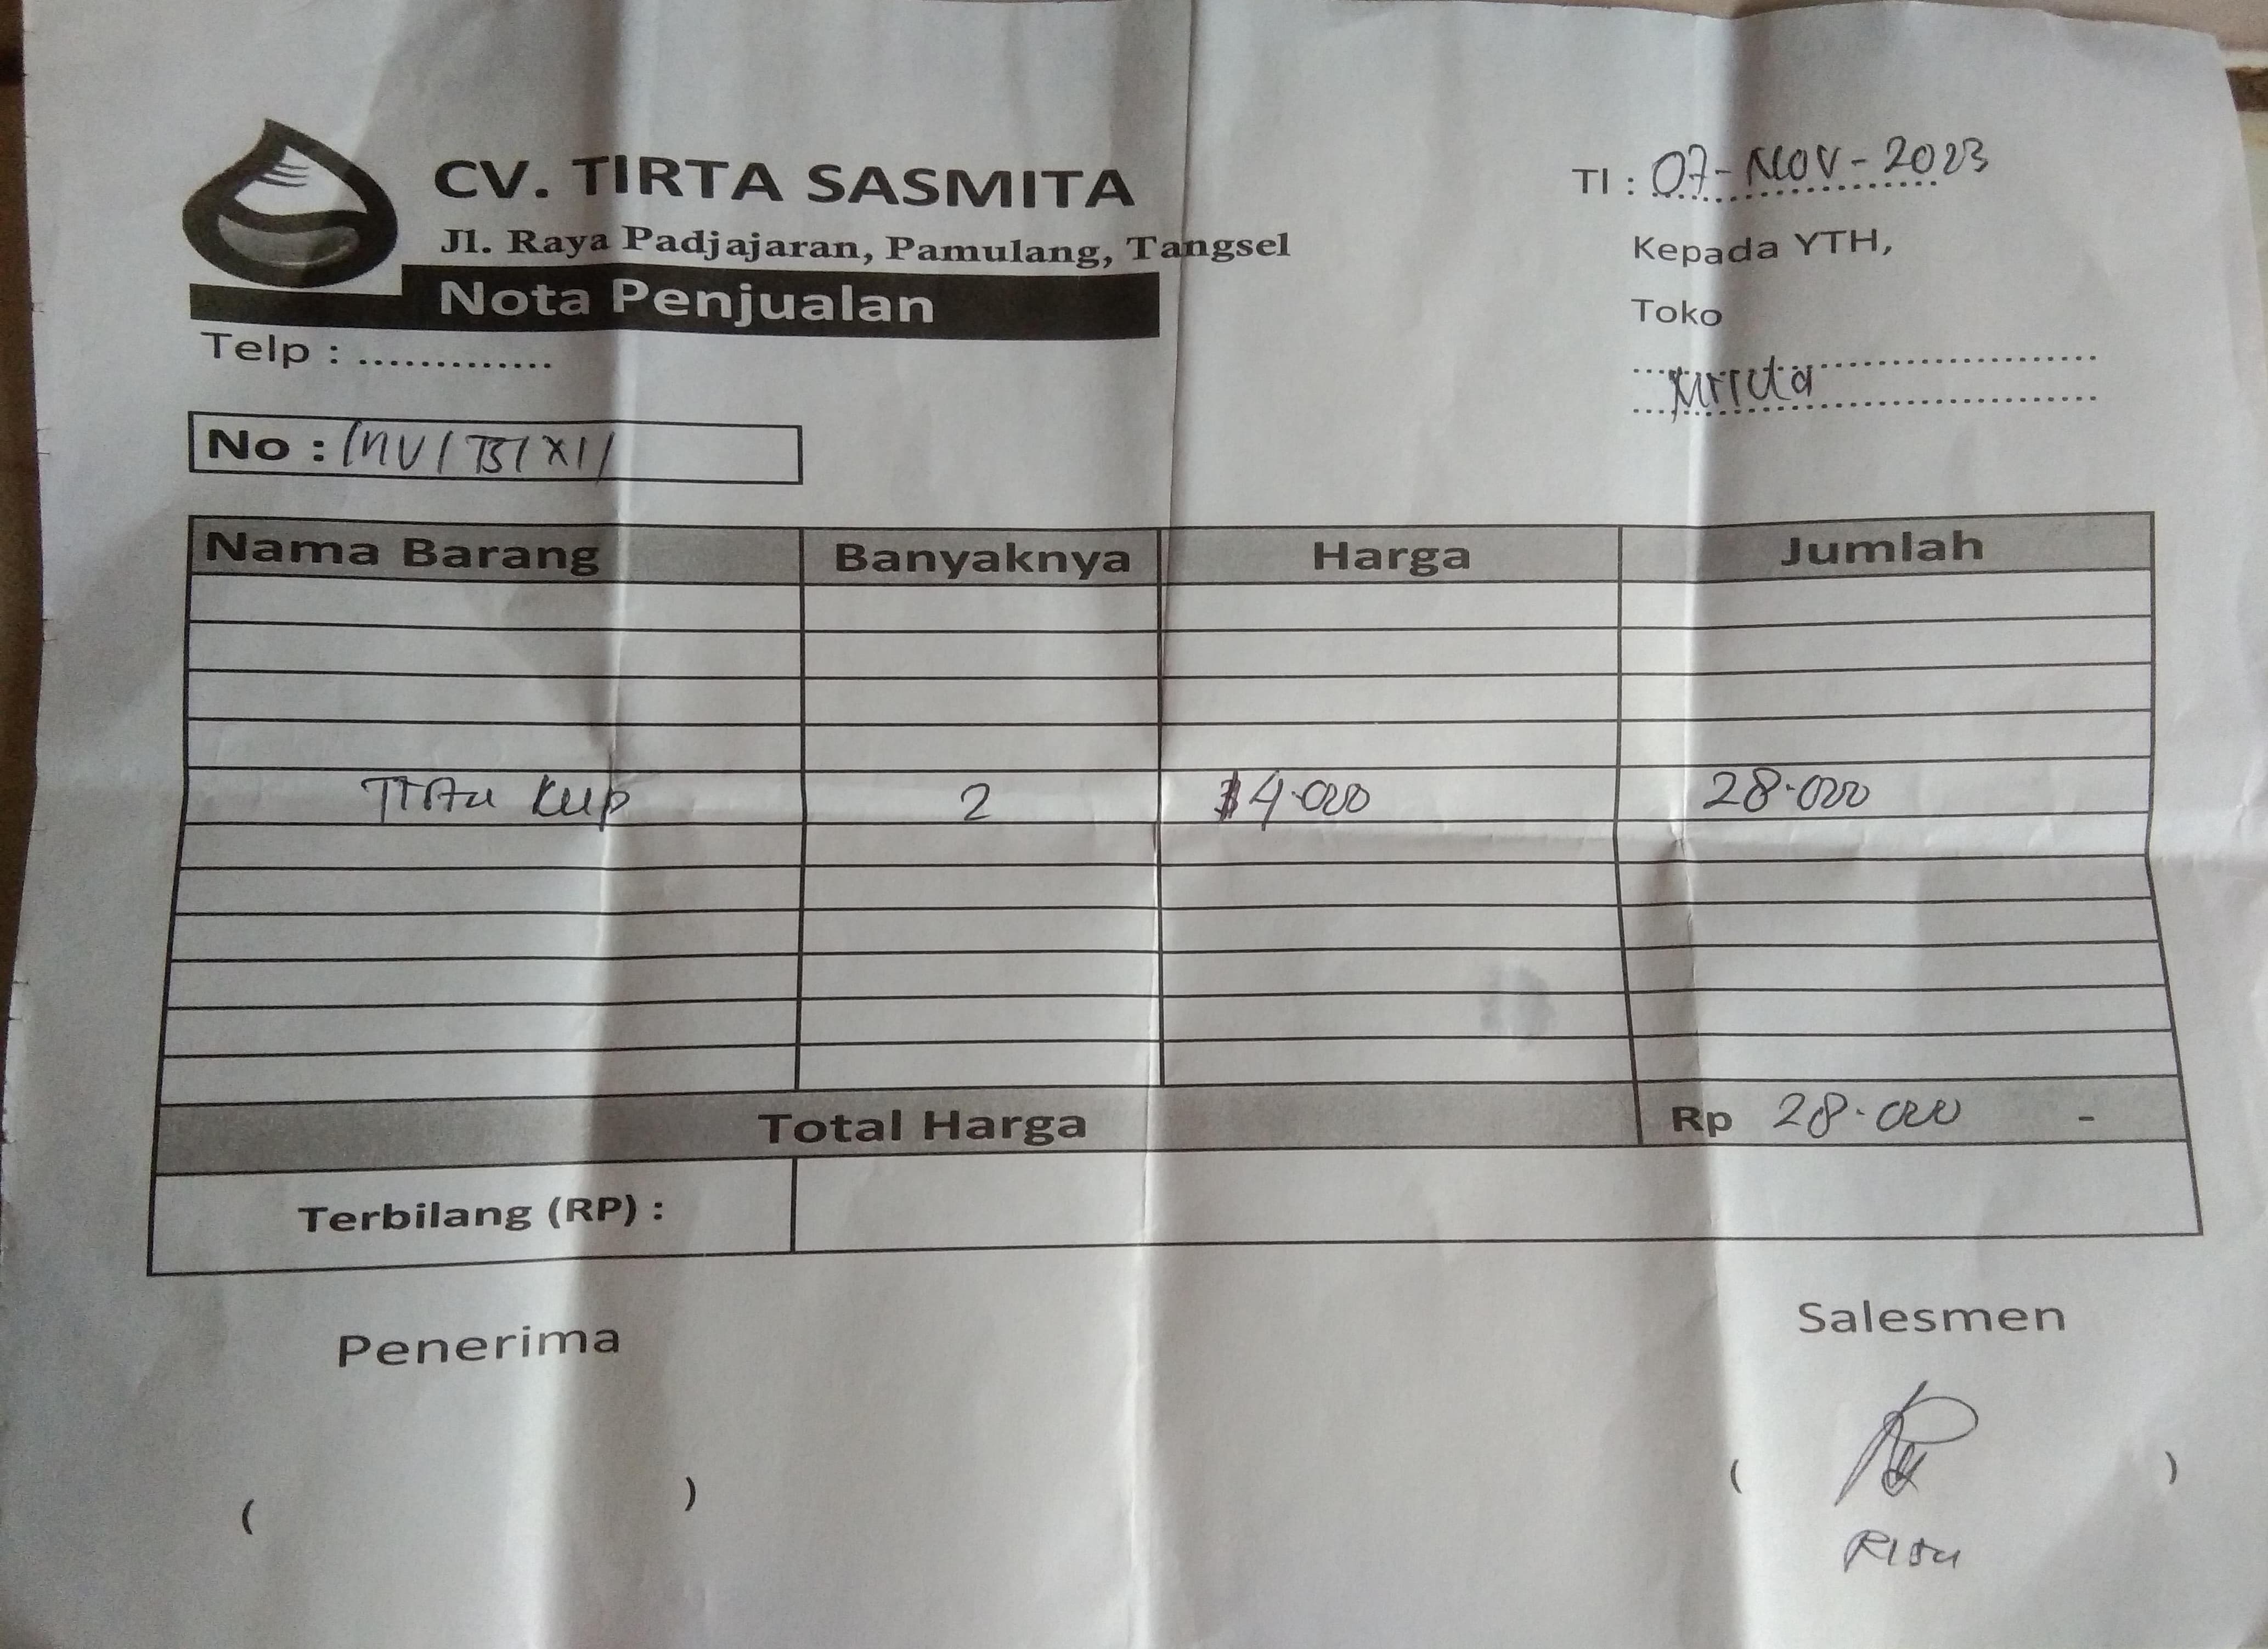 CV. TIRTA SASMITA
Jl. Raya Padjajaran, Pamulang, Tangsel
Nota Penjualan
Telp : .............
Tl : 07-NOV-2023
Kepada YTH,
Toko
No : INV/TS/XI/
Nama Barang Banyaknya Harga Jumlah
Kup 2 14.000 28.000
Total Harga Rp 28.000 -
Terbilang (RP) :
Penerima Salesmen
( ) ( )